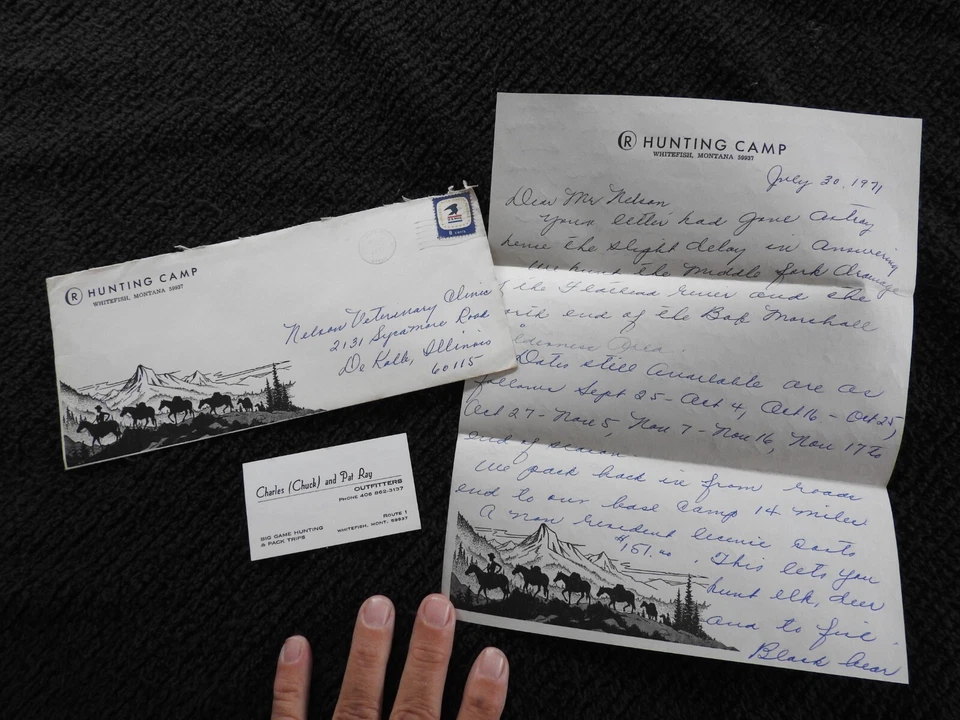 R HUNTING CAMP
WHITEFISH, MONTANA 59937
8 CENTS
Nelson Veterinary Clinic
2131 Sycamore Road
De Kalb, Illinois
60115
Charles (Chuck) and Pat Ray
OUTFITTERS
PHONE 406 862-3137
ROUTE 1
WHITEFISH, MONT. 59937
BIG GAME HUNTING
& PACK TRIPS
R HUNTING CAMP
WHITEFISH, MONTANA 59937
July 30, 1971
Dear Mr Nelson
Your letter had gone astray
hence the slight delay in answering
We hunt the Middle fork drainage
the Flathead river and the
end of the Bob Marshall
Area.
Dates still available are as
follows Sept 25 - Oct 4, Oct 16 - Oct 25,
Oct 27 - Nov 5, Nov 7 - Nov 16, Nov 17 to
end of season.
We pack back in from roads
end to our base Camp 14 miles
A non resident license costs
$151.00. This lets you
hunt elk, deer
and to fish
Black bear